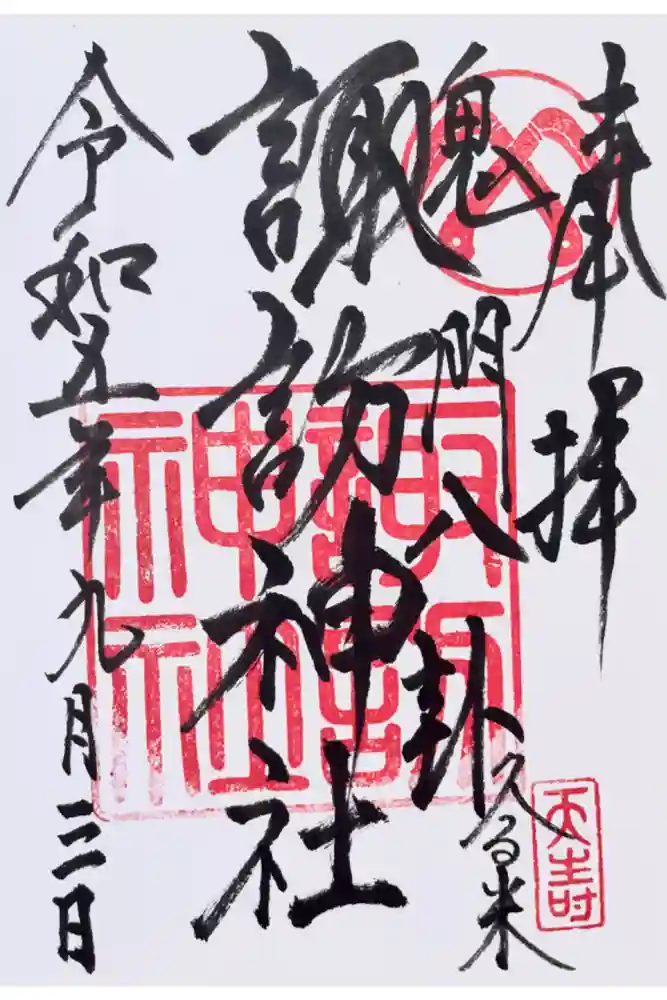 奉拝
鬼門八卦
久留米
諏訪神社
令和五年九月三日
諏訪
神社
天寿